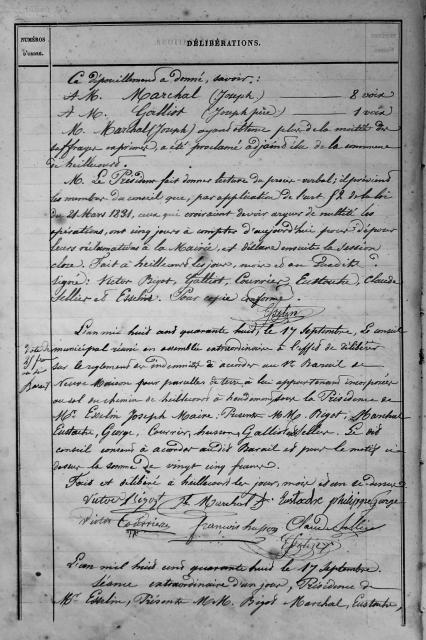 NUMÉROS
D'ORDRE.
DÉLIBÉRATIONS.
Ce dépouillement a donné, savoir:
A M. Marchal (Joseph) 8 voix
A M. Galliot (Joseph père) 1 voix
M. Marchal (Joseph) ayant obtenu plus de la moitié des
suffrages exprimés, a été proclamé adjoint de la commune
de heillecourt.
M. Le Président fait donner lecture du procès-verbal; il prévient
les membres du conseil que, par application de l'art 52 de la loi
du 21 Mars 1831, ceux qui croiraient devoir arguer de nullité les
opérations, ont cinq jours à compter d'aujourd'hui pour déposer
leurs réclamations à la Mairie, et déclare ensuite la session
close. Fait à heillecourt les jour, mois et an susdits
signé: Victor Bigot, Galliot, Courrier, Eustache, Claude
Sellier et Esselin. Pour copie conforme.
Esselin
L'an mil huit cent quarante huit, le 17 Septembre, le conseil
municipal réuni en assemblée extraordinaire à l'effet de délibérer
sur le règlement de indemnité à accorder au Sr Barail de
Neuve Maison pour parcelles de terre, à lui appartenant incorporées
au sol du chemin de heillecourt à houdemont sous la Présidence de
Mr Esselin Joseph Maire. Présents M.M. Bigot, Marchal
Eustache, George, Courrier, husson, Galliot et Sellier. Le dit
conseil consent à accorder audit Barail et pour le motif ci
dessus la somme de vingt cinq francs.
Fait et délibéré à heillecourt les jour, mois et an ci dessus
Victor Bigot Jh Marchal Eustache philippe George
Victor Courrier françois husson Claude Sellier
Esselin
L'an mil huit cent quarante huit le 17 Septembre
Séance extraordinaire d'un jour, Présidence de
Mr Esselin, Présents M.M. Bigot Marchal, Eustache,